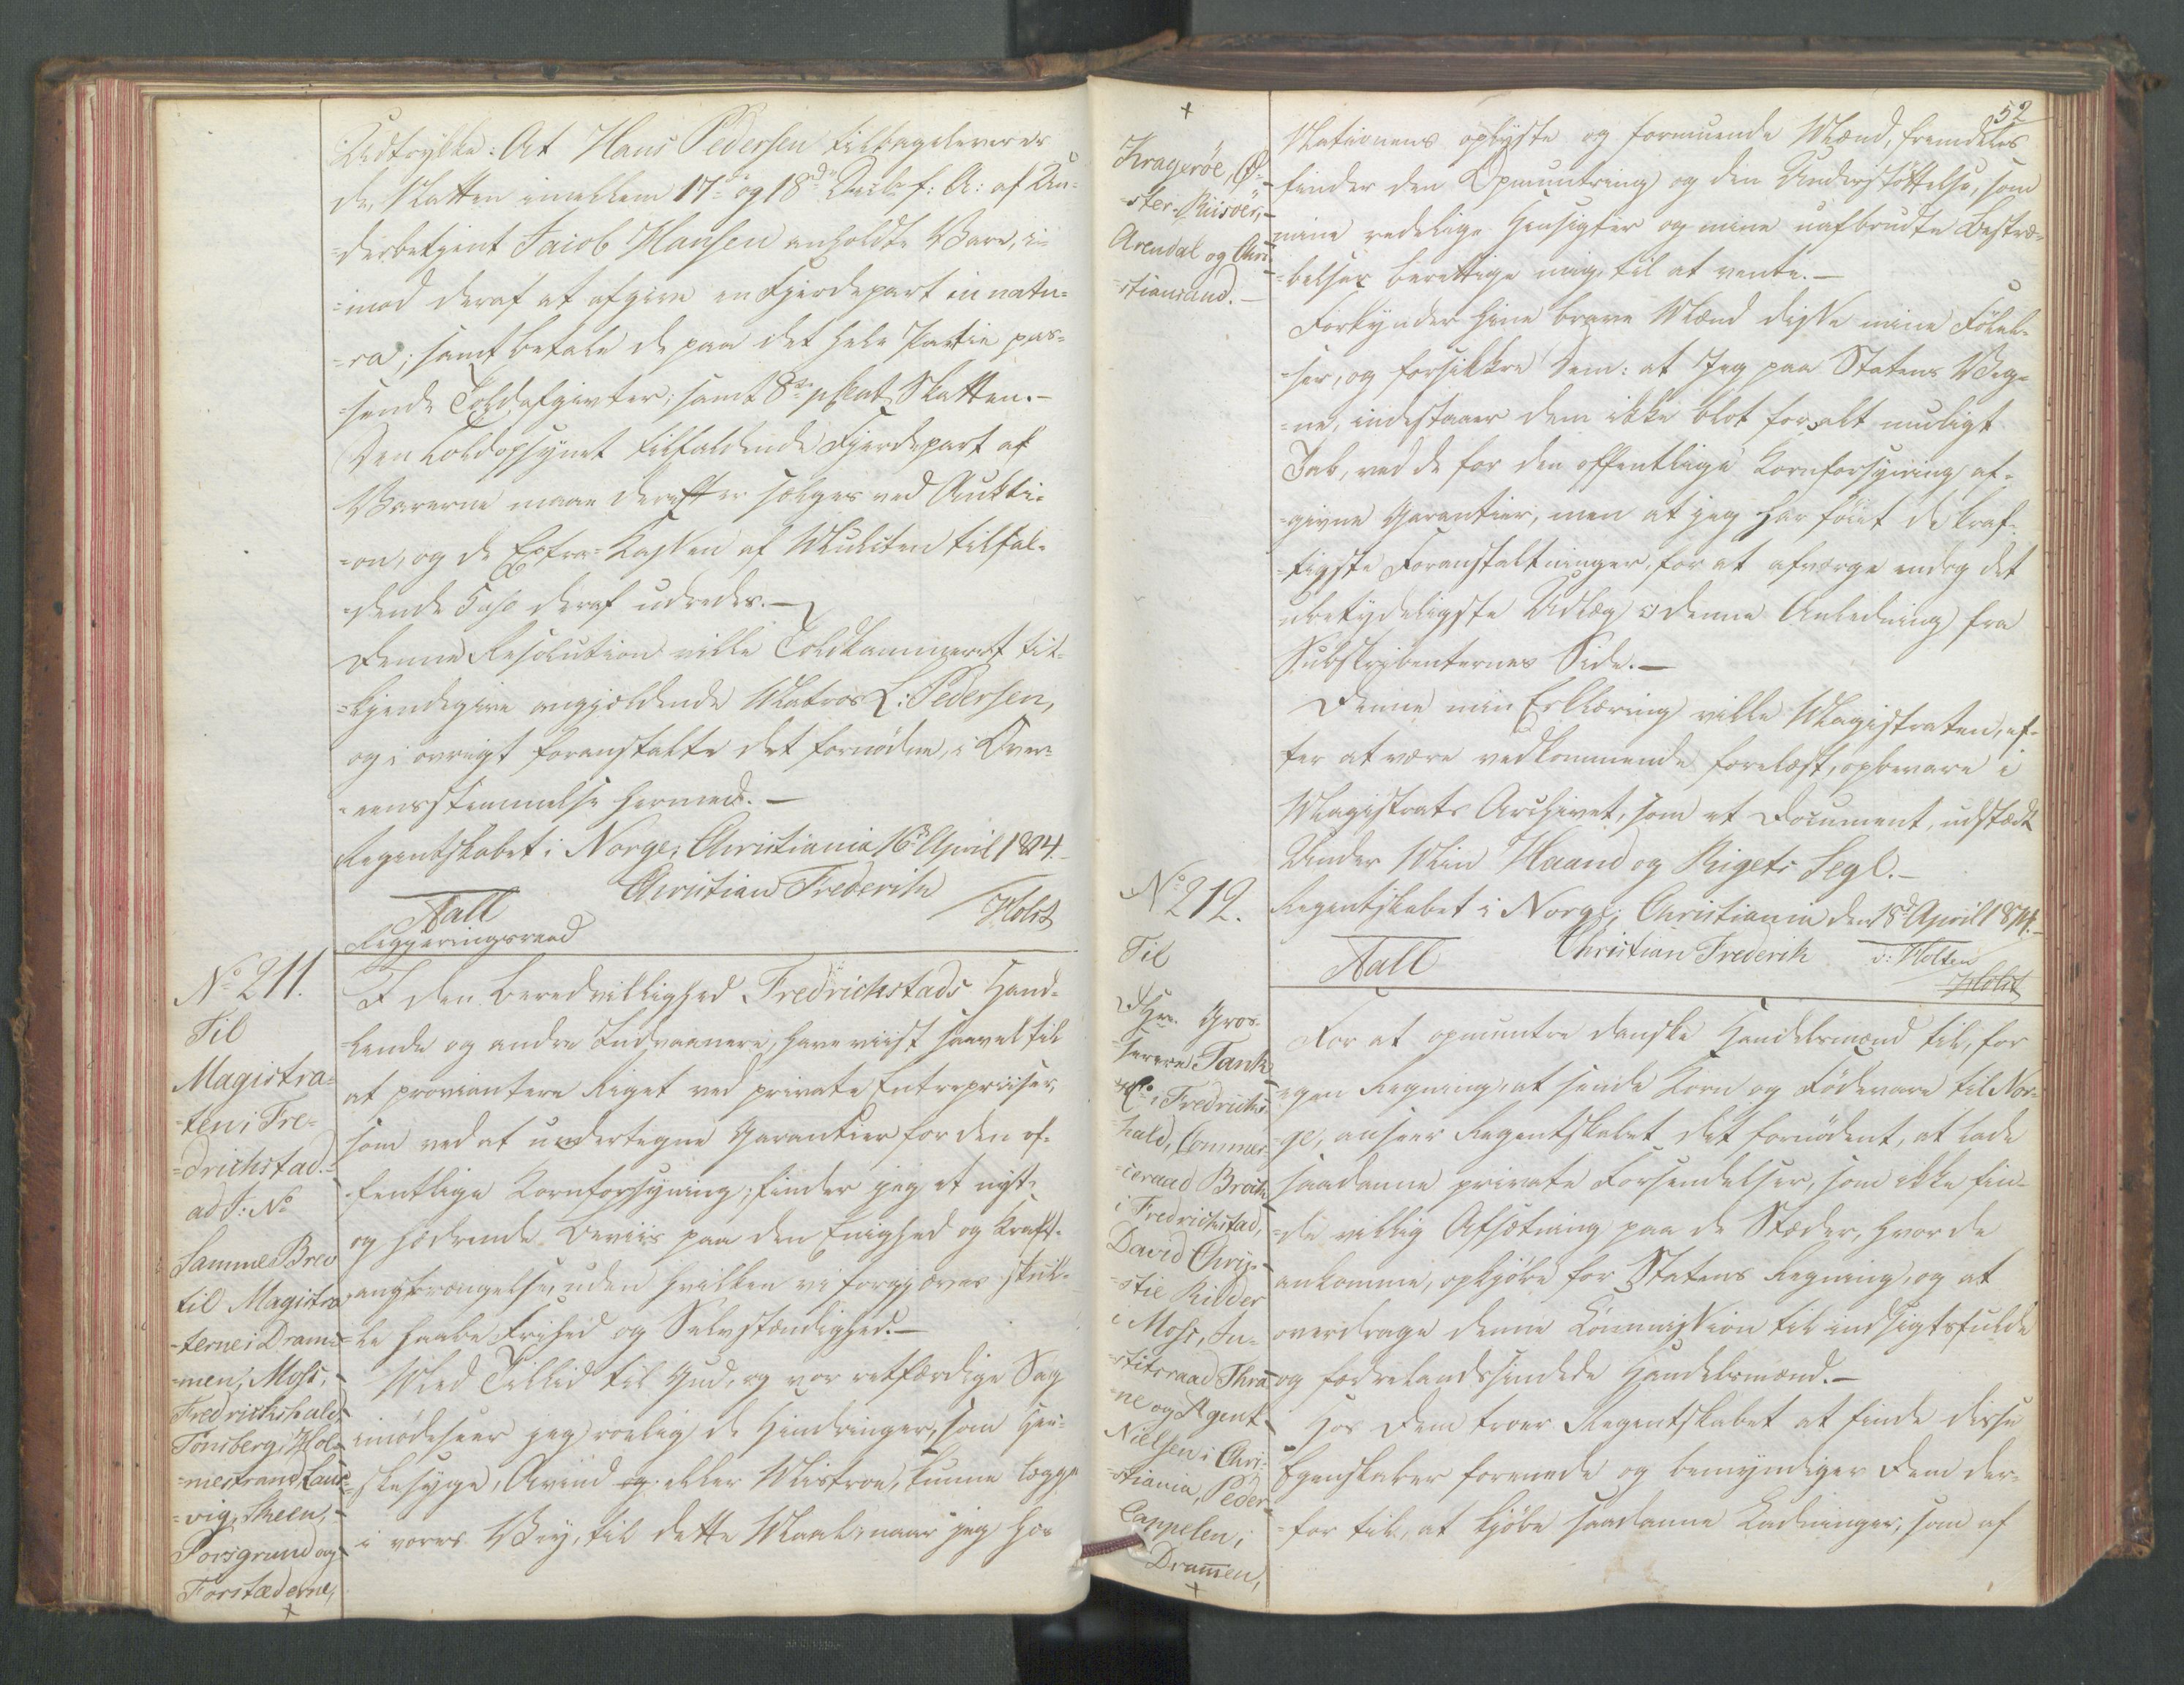 Udtrykke: At Hans Pedersen tilbageleverer
de, Natten imellem 17de og 18de Decbr f: A: af Un-
=derbetjent Jacob Hansen anholdte Vare, i-
=mod deraf at afgive en Fjerdepart in natu-
=ra; samt betale de paa det hele Partie pas-
=sende Toldafgivter, samt 8de pCent Skatten.-
Den Toldopsynet tilfaldende Fjerdepart af
Varerne maae derefter sælges ved Aukti-
=on, og de Extra-Kassen af Mulkten tilfal-
=dende deraf udredes.-
Denne Resolution ville Toldkammeret til-
=kjendegive angjældende Matros L: Pedersen,
og i øvrigt foranstalte det fornødne, i Over-
=eensstemmelse hermed.-
Regentskabet i Norge, Christiania 16de April 1814.
Christian Frederik
Aall
Holst
Regjeringsraad
No 211.
Til
Magistra-
=ten i Fre-
=drichstad.
ad J: No
Samme Brev
til Magistra
=terne i Dram-
=men, Moss,
Fredrichshald,
Tønsberg, Hol-
=mestrand, Laur-
=vig, Skeen,
Porsgrund og
Forstæderne,
+
I den Beredvillighed Fredrichstads Hand-
=lende og andre Indvaanere, have viist saavel til
at proviantere Riget ved private Entrepriser,
som ved at undertegne Garantier for den of-
=fentlige Kornforsyning; finder jeg et nyt
og hædrende Beviis paa den Enighed og Kraft-
=anstrængelse, uden hvilken vi forgjæves skul-
=le haabe Frihed og Selvstændighed.-
Med Tillid til Gud, og vor retfærdige Sag
imødeseer jeg rolig de Hindringer, som Hen-
=skesyge, Avind og eller Mistroe, kunne lægge
i vores Vej, til dette Maal, naar jeg hos
+
Kragerøe, Ø-
=ster-Riisøer,
Arendal og Chri-
=stiansand.-
52
Nationens oplyste og formuende Mænd, fremdeles
finder den Opmuntring og den Understøttelse, som
mine redelige Hensigter og mine uafbrudte Bestræ-
=belser berettige mig til at vente.-
Forkynder hine brave Mænd disse mine Følel-
=ser, og forsikkre Dem: at Jeg paa Statens Veg-
=ne, indestaaer dem ikke blot for alt muligt
Tab, ved de for den offentlige Kornforsyning af-
=givne Garantier, men at jeg har føiet de kraf-
=tigste Foranstaltninger, for at afværge endog det
ubetydeligste Udlæg i denne Anledning fra
Subskribenternes Side.-
Denne min Erklæring ville Magistraten, ef-
ter at være vedkommende forelæst, opbevare i
Magistrats Archivet, som et Document, udstædt
Under Min Haand og Rigets Segl.-
Regentskabet i Norge; Christiania den 18de April 1814.
Aall
Christian Frederik
v: Holten
Holst
No 212.
Til
DHrr. Gros-
=serere Tank
& Co: i Fredrichs-
hald, Commer-
=ceraad Broch
i Fredrichstad,
David Chry-
=stie Ridder
i Moss, Ju-
=stitsraad Thra-
=ne og Agent
Nielsen i Chri-
=stiania, Peder
Cappelen, i
Drammen,
+
For at opmuntre danske Handelsmænd til, for
egen Regning, at sende Korn og Fødevare til Nor-
=ge, anseer Regentskabet det fornødent, at lade
saadanne private Forsendelser, som ikke fin-
=de villig Afsætning paa de Stæder, hvor de
ankomme, opkjøbe for Statens Regning, og at
overdrage denne Commission til indsigtsfulde
og fædrelandssindede Handelsmænd.-
Hos Dem troer Regentskabet at finde disse
Egenskaber forenede og bemyndiger Dem der-
=for til, at kjøbe saadanne Ladninger, som af